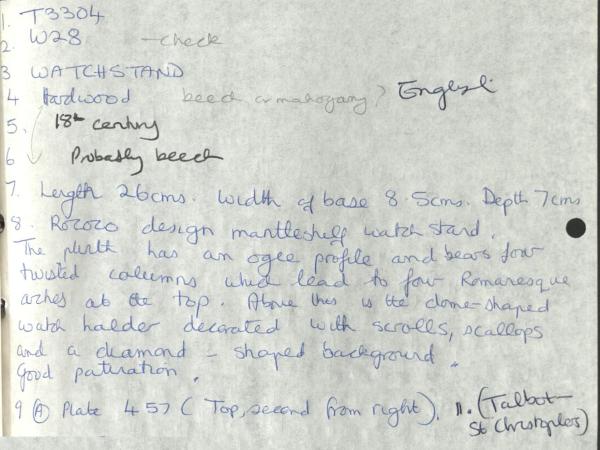 1. T3304
2. W28 - check
3 WATCHSTAND
4 Hardwood beech or mahogany? English
5. 18th century
6 Probably beech
7. Length 26cms. Width of base 8.5cms. Depth 7cms
8. Rococo design mantleshelf watch stand.
The plinth has an ogee profile and bears four
twisted columns which lead to four Romanesque
arches at the top. Above this is the dome-shaped
watch holder decorated with scrolls, scallops
and a diamond - shaped background.
Good patination.
9 (A) Plate 457 (Top, second from right). 11. (Talbot-
St Christophers)